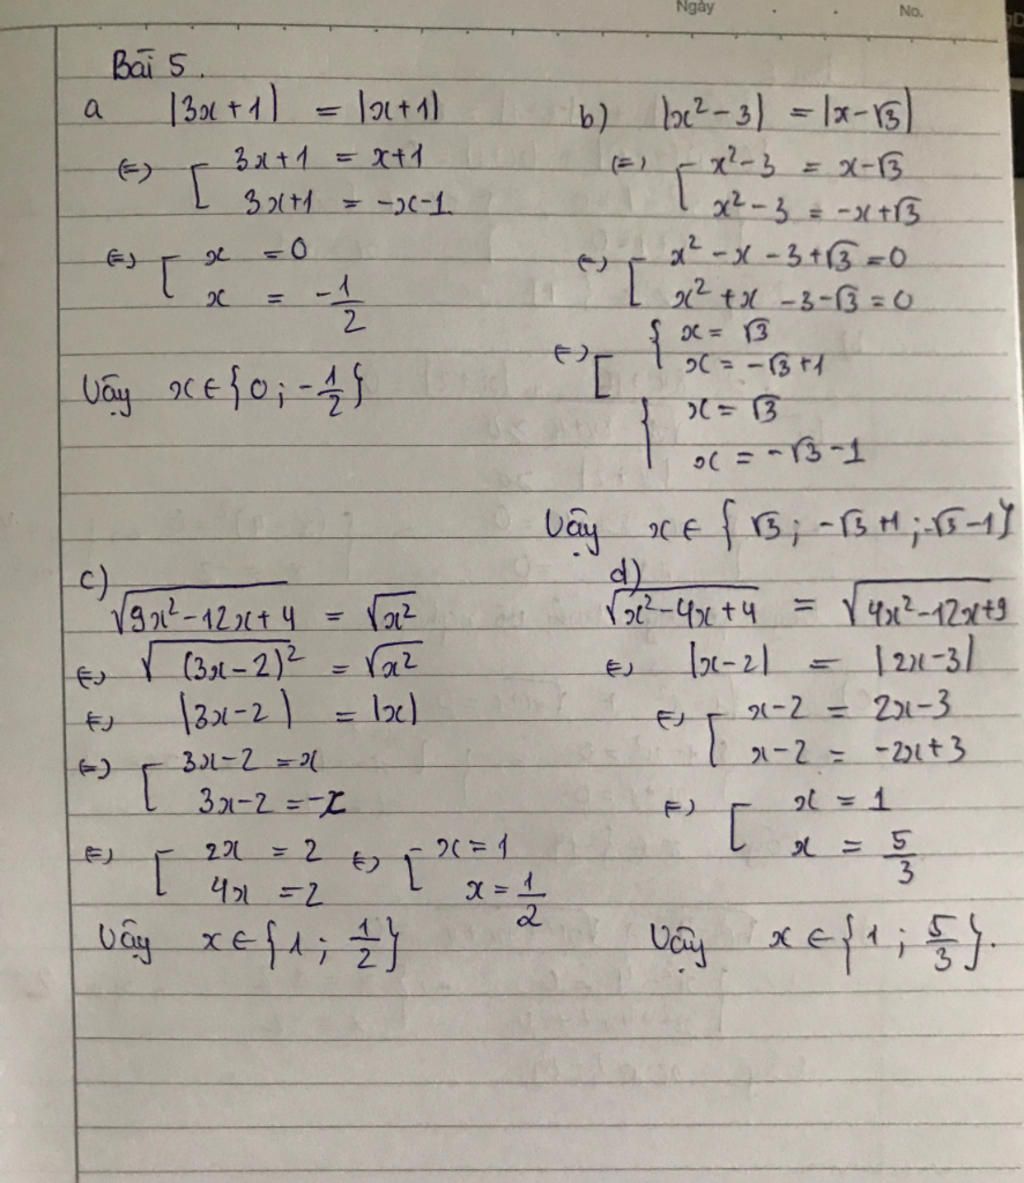 Ngày No.
Bài 5.
a |3x+1| = |x+1|
⇔ [ 3x+1 = x+1
3x+1 = -x-1
⇔ [ x = 0
x = -1/2
Vậy x ∈ {0; -1/2}
b) |x²-3| = |x-√3|
⇔ [ x²-3 = x-√3
x²-3 = -x+√3
⇔ [ x²-x-3+√3=0
x²+x-3-√3=0
⇔ [ { x = √3
x = -√3+1
{ x = √3
x = -√3-1
Vậy x ∈ {√3; -√3+1; -√3-1}
c)
√(9x²-12x+4) = √(x²)
⇔ √((3x-2)²) = √(x²)
⇔ |3x-2| = |x|
⇔ [ 3x-2 = x
3x-2 = -x
⇔ [ 2x = 2 ⇔ [ x = 1
4x = 2 x = 1/2
Vậy x ∈ {1; 1/2}
d)
√(x²-4x+4) = √(4x²-12x+9)
⇔ |x-2| = |2x-3|
⇔ [ x-2 = 2x-3
x-2 = -2x+3
⇔ [ x = 1
x = 5/3
Vậy x ∈ {1; 5/3}.